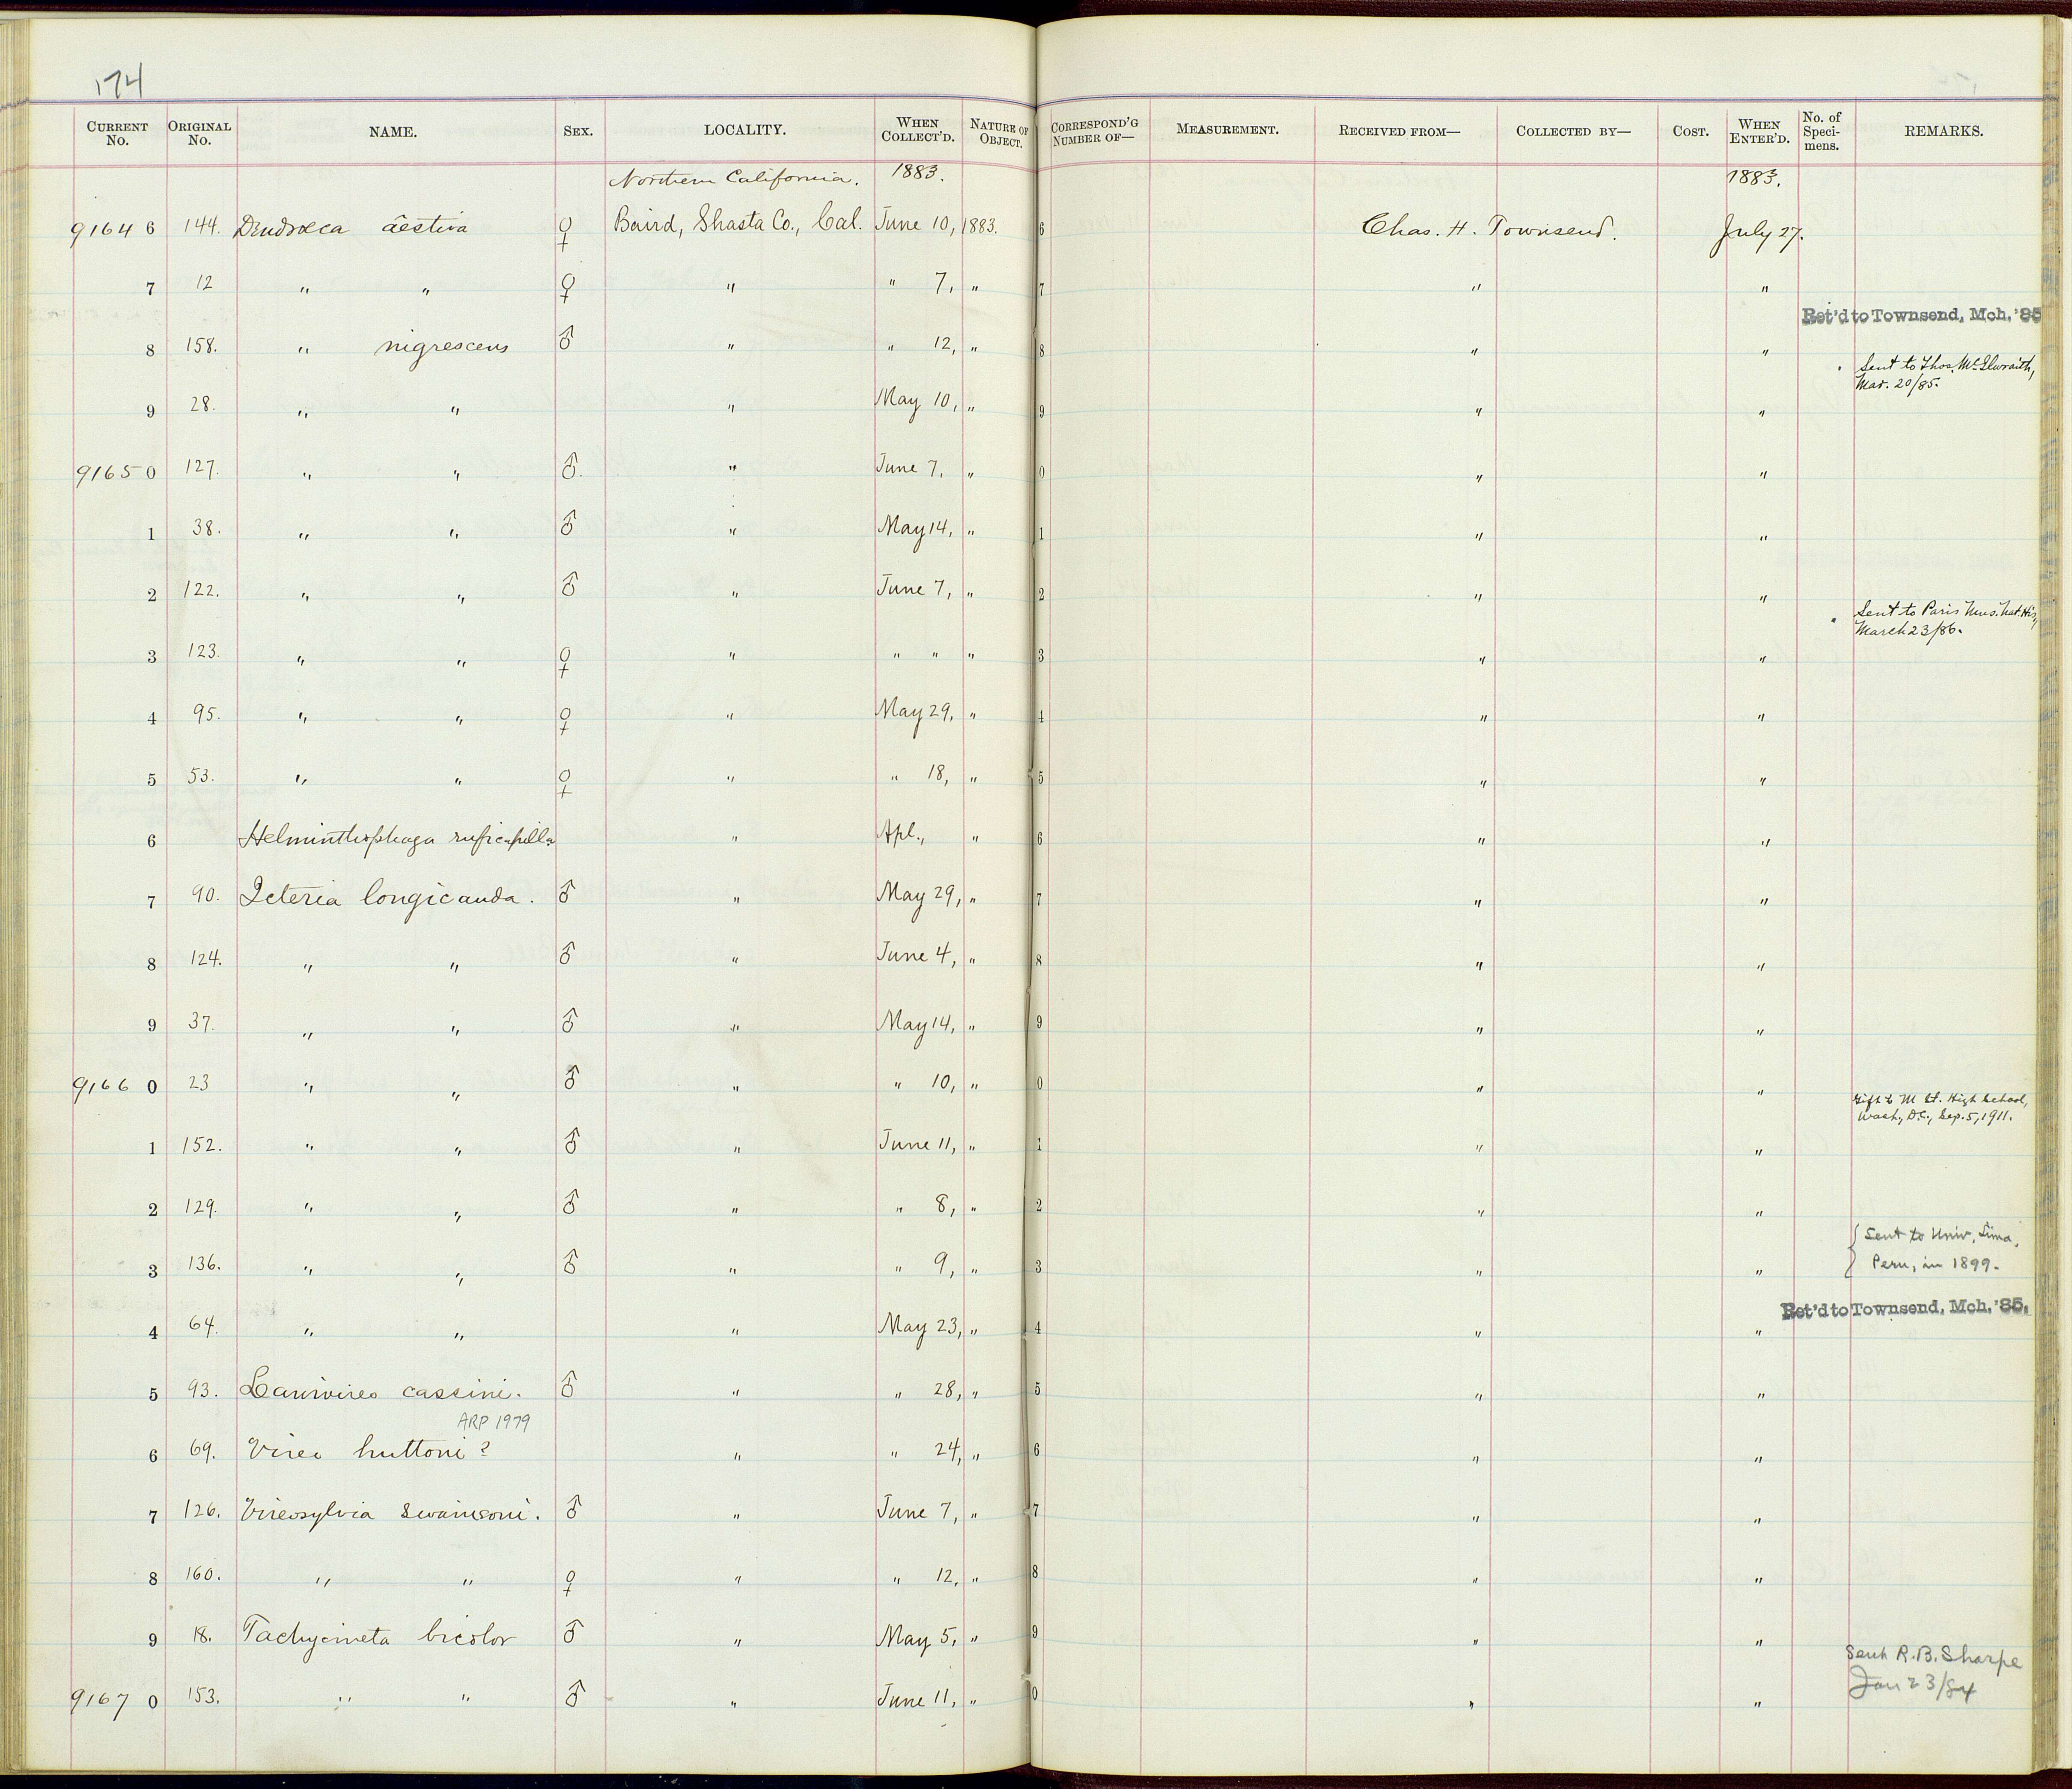 174
CURRENT No. ORIGINAL No. NAME. SEX. LOCALITY. WHEN COLLECT'D. NATURE OF OBJECT. CORRESPOND'G NUMBER OF— MEASUREMENT. RECEIVED FROM— COLLECTED BY— COST. WHEN ENTER'D. No. of Specimens. REMARKS.
Northern California. 1883. 1883.
9164 6 144. Dendroeca aestiva ♀ Baird, Shasta Co., Cal. June 10, 1883. 6 Chas. H. Townsend. July 27.
7 12 " " ♀ " " 7, " 7 " "
Ret'd to Townsend, Mch. '85
8 158. " nigrescens ♂ " " 12, " 8 " "
Sent to Thos. McIlwraith,
Mar. 20/85.
9 28. " " " May 10, " 9 " "
9165 0 127. " " ♂. " June 7, " 0 " "
1 38. " " ♂ " May 14, " 1 " "
2 122. " " ♂ " June 7, " 2 " "
Sent to Paris Mus. Nat. His,
March 23/86.
3 123. " " ♀ " " " " 3 " "
4 95. " " ♀ " May 29, " 4 " "
5 53. " " ♀ " " 18, " 5 " "
6 Helminthophaga ruficapilla " Apl., " 6 " "
7 90. Icteria longicauda. ♂ " May 29, " 7 " "
8 124. " " ♂ " June 4, " 8 " "
9 37. " " ♂ " May 14, " 9 " "
9166 0 23 " " ♂ " " 10, " 0 " "
Gift to M St. High School,
Wash, D.C., Sep. 5, 1911.
1 152. " " ♂ " June 11, " 1 " "
2 129. " " ♂ " " 8, " 2 " "
Sent to Univ, Lima,
Peru, in 1899.
3 136. " " ♂ " " 9, " 3 " "
Ret'd to Townsend, Mch. '85.
4 64. " " " May 23, " 4 " "
5 93. Lanivireo cassini. ♂ " " 28, " 5 " "
ARP 1979
6 69. Vireo huttoni? " " 24, " 6 " "
7 126. Vireosylvia swainsoni. ♂ " June 7, " 7 " "
8 160. " " ♀ " " 12, " 8 " "
9 18. Tachycineta bicolor ♂ " May 5, " 9 " "
Sent R. B. Sharpe
Jan 23/84
9167 0 153. " " ♂ " June 11, " 0 " "